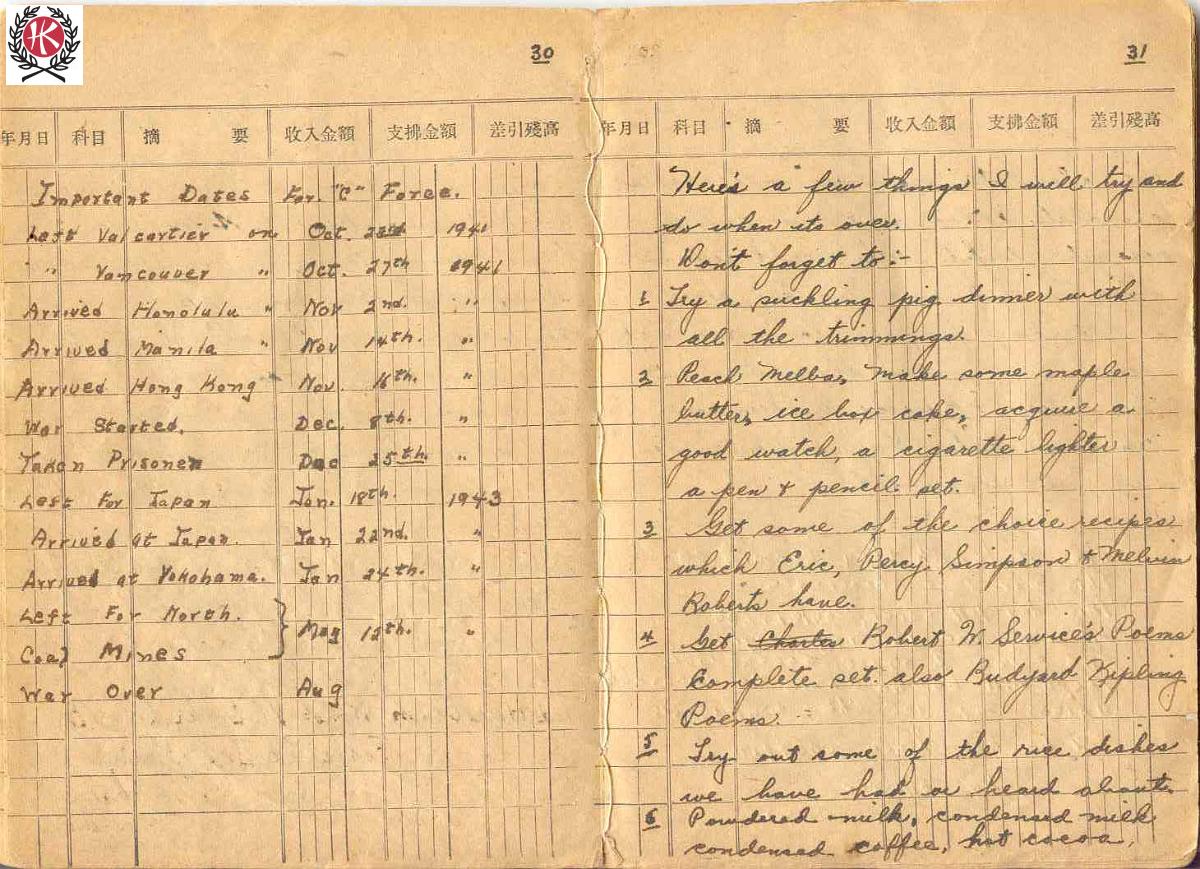 HK
30
年月日 科目 摘 要 收入金額 支拂金額 差引残高
Important Dates For "C" Force.
Left Valcartier on Oct. 23rd 1941
" Vancouver " Oct. 27th 1941
Arrived Honolulu " Nov 2nd. "
Arrived Manila " Nov 14th. "
Arrived Hong Kong " Nov. 16th. "
War Started. Dec. 8th. "
Taken Prisoner Dec 25th. "
Left For Japan Jan. 18th. 1943
Arrived at Japan. Jan 22nd. "
Arrived at Yokohama. Jan 24th. "
Left For North. } May 12th. "
Coal Mines
War Over Aug
31
年月日 科目 摘 要 收入金額 支拂金額 差引残高
Here's a few things I will try and
do when its over.
Don't forget to:-
1 Try a suckling pig dinner with
all the trimmings.
2 Peach Melba, make some maple
butter, ice box cake, acquire a
good watch, a cigarette lighter
a pen & pencil set.
3 Get some of the choice recipes
which Eric, Percy Simpson & Melvin
Roberts have.
4 Get Charles Robert W. Service's Poems
complete set. also Rudyard Kipling
Poems.
5 Try out some of the rice dishes
we have had or heard about.
6 Powdered milk, condensed milk
condensed coffee, hot cocoa,